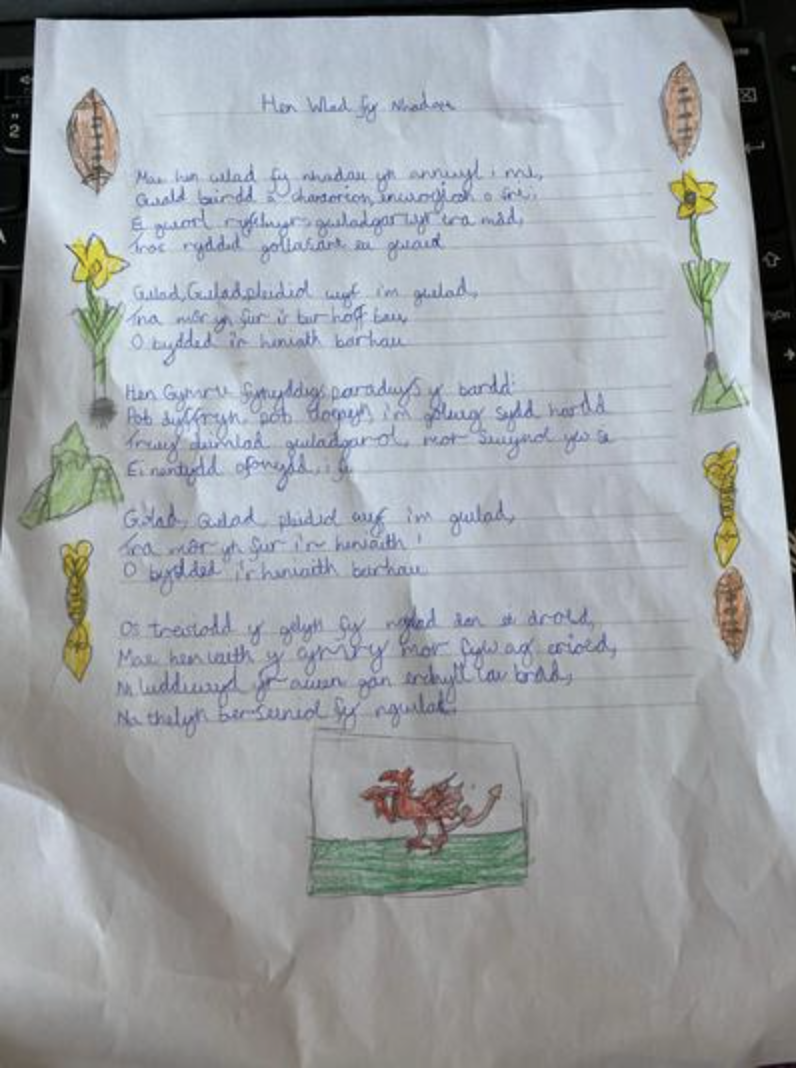 Hen Wlad fy Nhadau
Mae hen wlad fy nhadau yn annwyl i mi,
Gwald beirdd a chantorion, enwogion o fri;
Ei gwrol ryfelwyr, gwladgarwyr tra mâd,
Tros ryddid gollasant eu gwaed
Gwlad, Gwlad, pleidiol wyf i'm gwlad,
Tra môr yn fur i'r bur hoff bau,
O bydded i'r heniaith barhau
Hen Gymru fynyddig, paradwys y bardd:
Pob dyffryn, pob clogwyn, i'm golwg sydd hardd
Trwy deimlad gwladgarol, mor swynol yw si
Ei nentydd, afonydd, i fi
Gwlad, Gwlad, pleidiol wyf i'm gwlad,
Tra môr yn fur i'r heniaith !
O bydded i'r heniaith barhau
Os treisiodd y gelyn fy ngwlad dan ei droed,
Mae heniaith y Cymry mor fyw ag erioed,
Ni luddiwyd yr awen gan erchyll law brad,
Na thelyn berseiniol fy ngwlad.